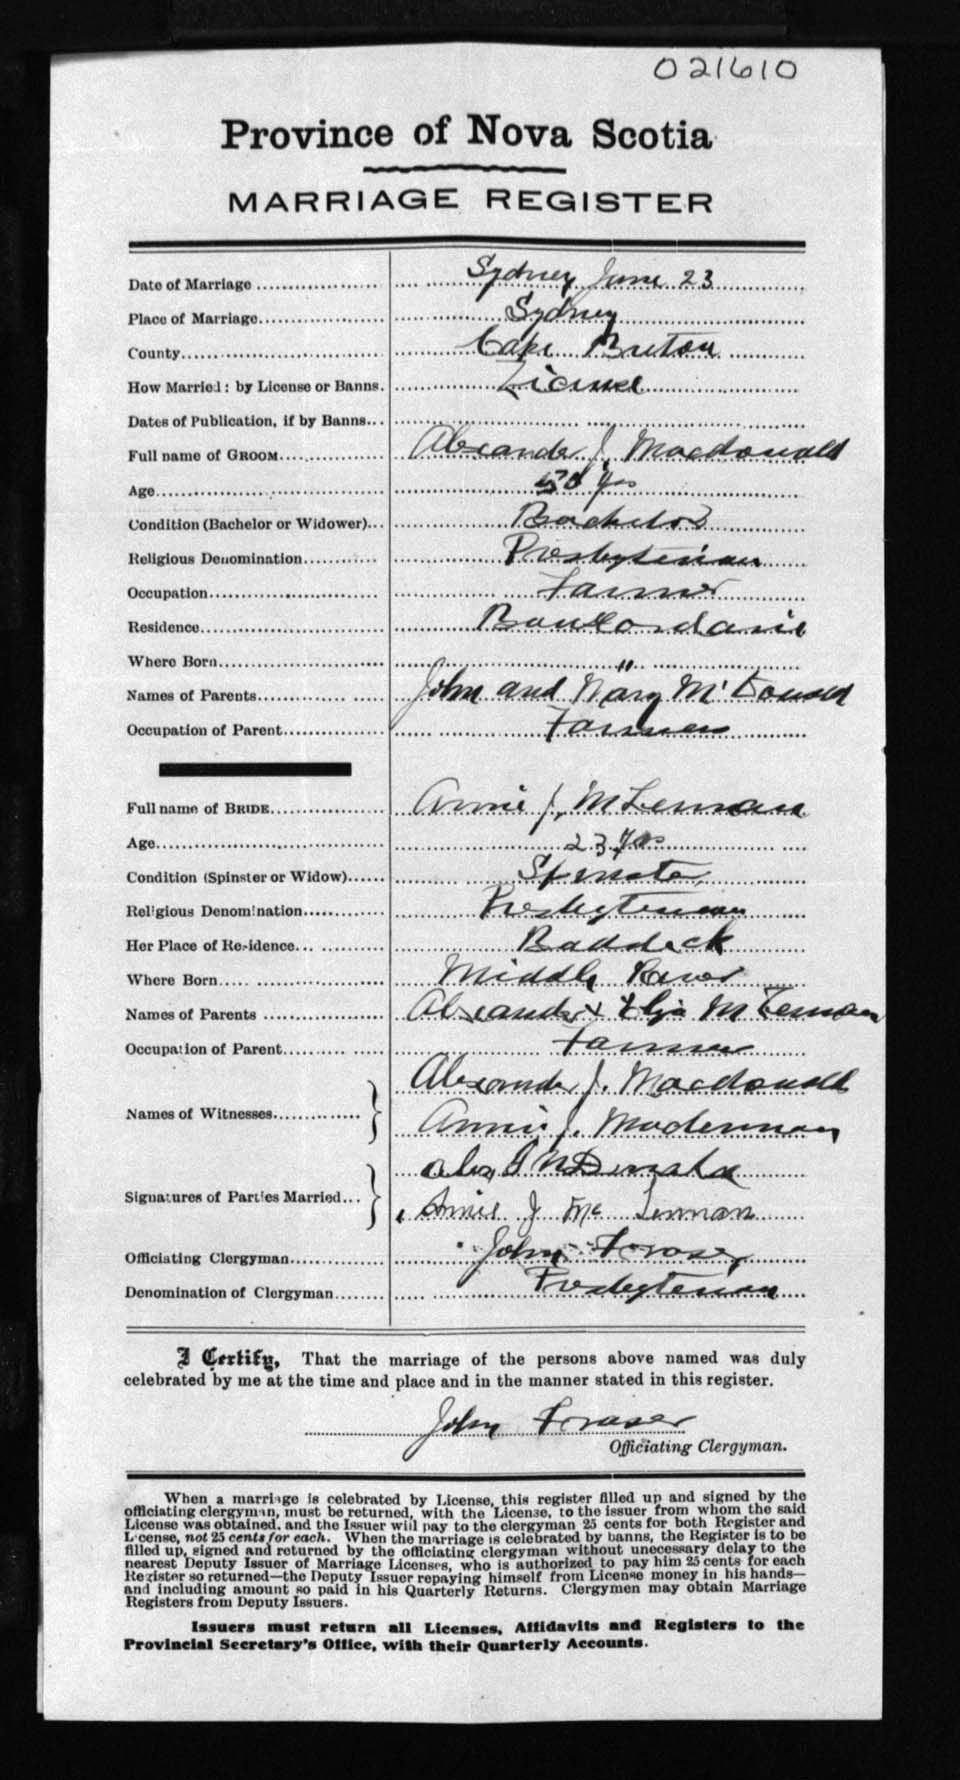 021610
Province of Nova Scotia
MARRIAGE REGISTER
Date of Marriage Sydney June 23
Place of Marriage Sydney
County Cape Breton
How Married: by License or Banns. License
Dates of Publication, if by Banns
Full name of GROOM Alexander J. Macdonald
Age yrs
Condition (Bachelor or Widower) Bachelor
Religious Denomination Presbyterian
Occupation Farmer
Residence Boulardarie
Where Born "
Names of Parents John and Mary McDonald
Occupation of Parent Farmer
Full name of BRIDE Annie J. McLennan
Age 23 yrs
Condition (Spinster or Widow) Spinster
Religious Denomination Presbyterian
Her Place of Residence Baddeck
Where Born Middle River
Names of Parents Alexander + Eliza McLennan
Occupation of Parent Farmer
Alexander J. Macdonald
Names of Witnesses
Annie J. Maclennan
Alex J McDonald
Signatures of Parties Married
Annie J Mc Lennan
Officiating Clergyman John Fraser
Denomination of Clergyman Presbyterian
I Certify, That the marriage of the persons above named was duly
celebrated by me at the time and place and in the manner stated in this register.
John Fraser
Officiating Clergyman.
When a marriage is celebrated by License, this register filled up and signed by the
officiating clergyman, must be returned, with the License, to the issuer from whom the said
License was obtained, and the Issuer will pay to the clergyman 25 cents for both Register and
License, not 25 cents for each. When the marriage is celebrated by banns, the Register is to be
filled up, signed and returned by the officiating clergyman without unnecessary delay to the
nearest Deputy Issuer of Marriage Licenses, who is authorized to pay him 25 cents for each
Register so returned—the Deputy Issuer repaying himself from License money in his hands—
and including amount so paid in his Quarterly Returns. Clergymen may obtain Marriage
Registers from Deputy Issuers.
Issuers must return all Licenses, Affidavits and Registers to the
Provincial Secretary's Office, with their Quarterly Accounts.